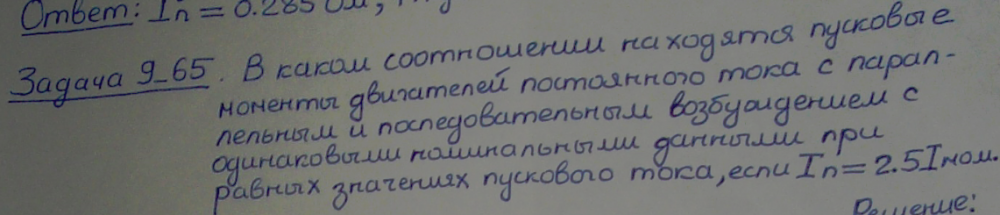 Ответ: Iп = 0.285 Ом,
Задача 9_65. В каком соотношении находятся пусковые
моменты двигателей постоянного тока с парал-
лельным и последовательным возбуждением с
одинаковыми номинальными данными при
равных значениях пускового тока, если Iп = 2.5 Iном.
Решение: